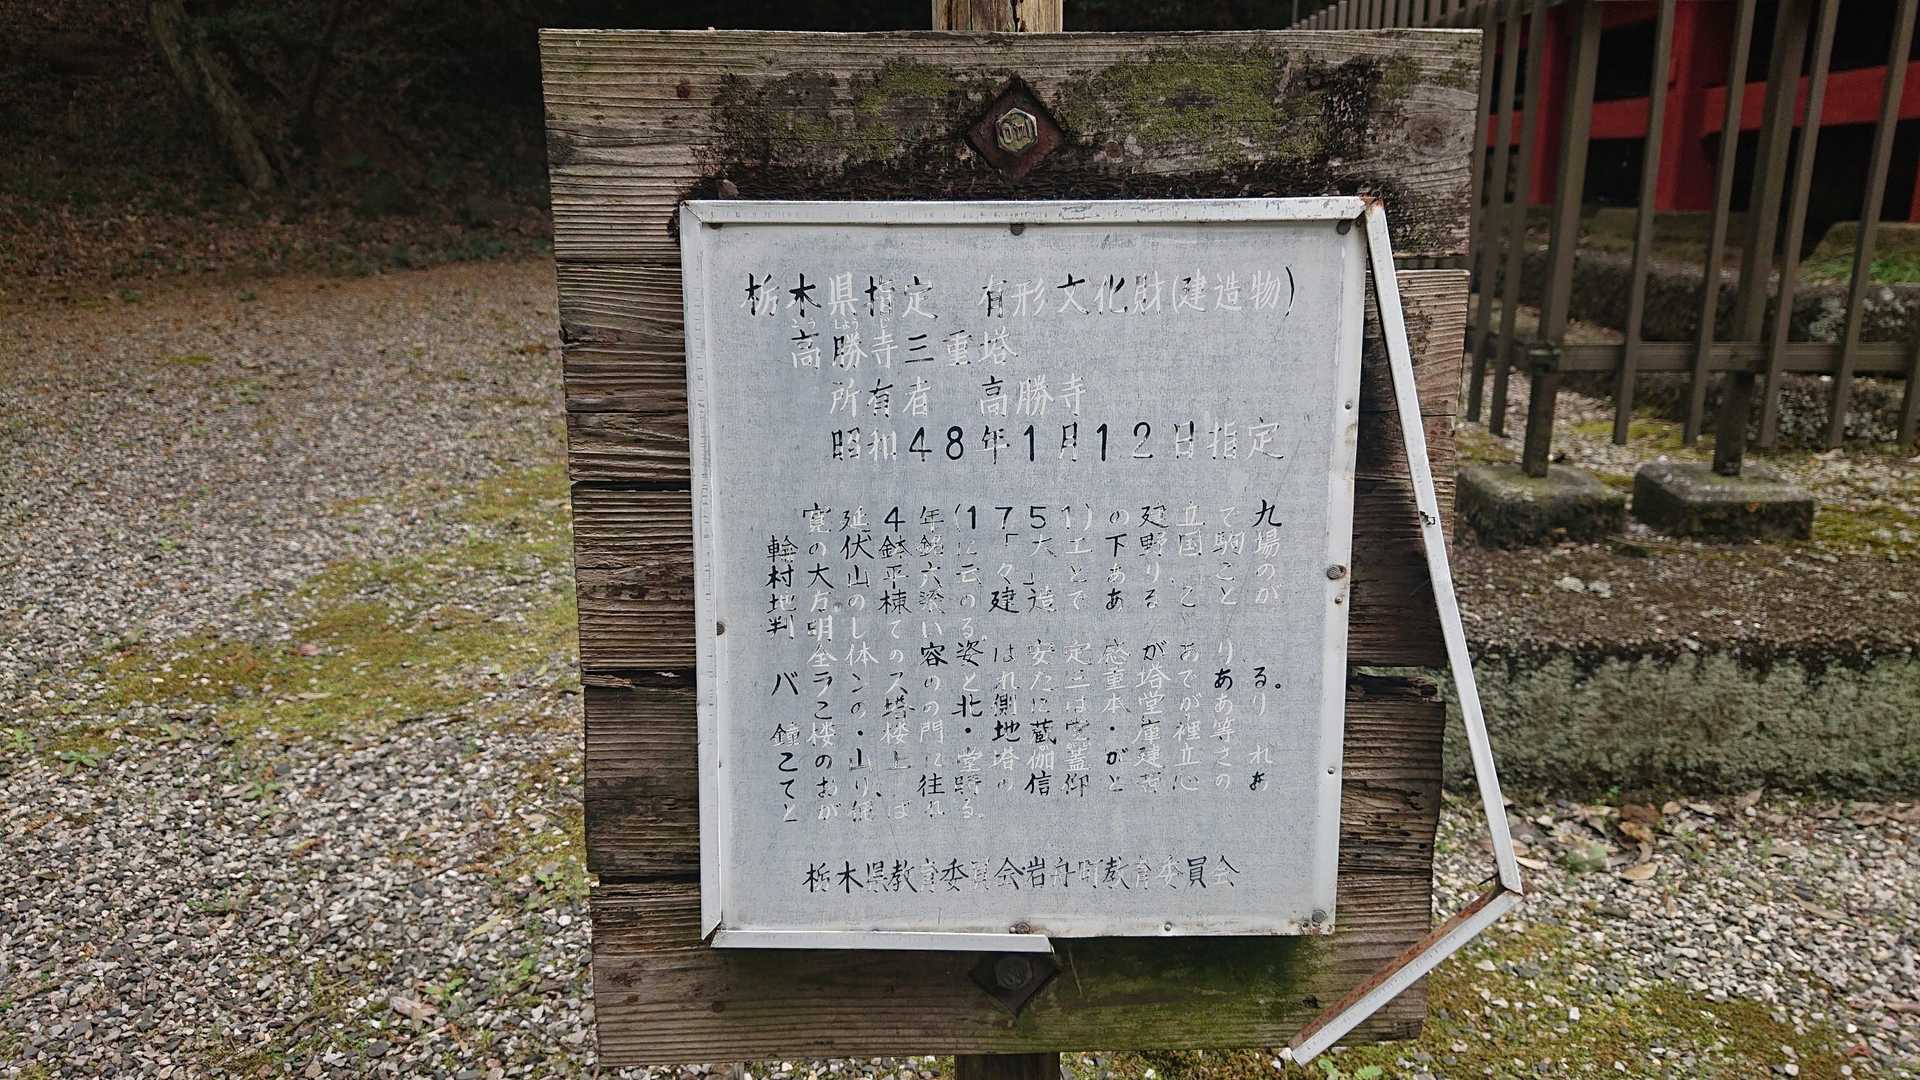 栃木県指定 有形文化財(建造物)
こう しょう じ
高勝寺三重塔
所有者 高勝寺
昭和48年1月12日指定
寛延4年(1751)の建立で九
輪の伏鉢銘に「大工下野国駒場
村大山平六云々」とあり、この
地方の棟梁の建造であることが
判明している。
全体の容姿は安定感があり、
バランスのとれた三重塔である。
この塔の北側には本堂があり
鐘楼・楼門・地蔵堂・庫裡等
この山上に堂塔伽藍が建立され
ており、往野の信仰と心のあ
とが偲ばれる。
栃木県教育委員会岩舟町教育委員会